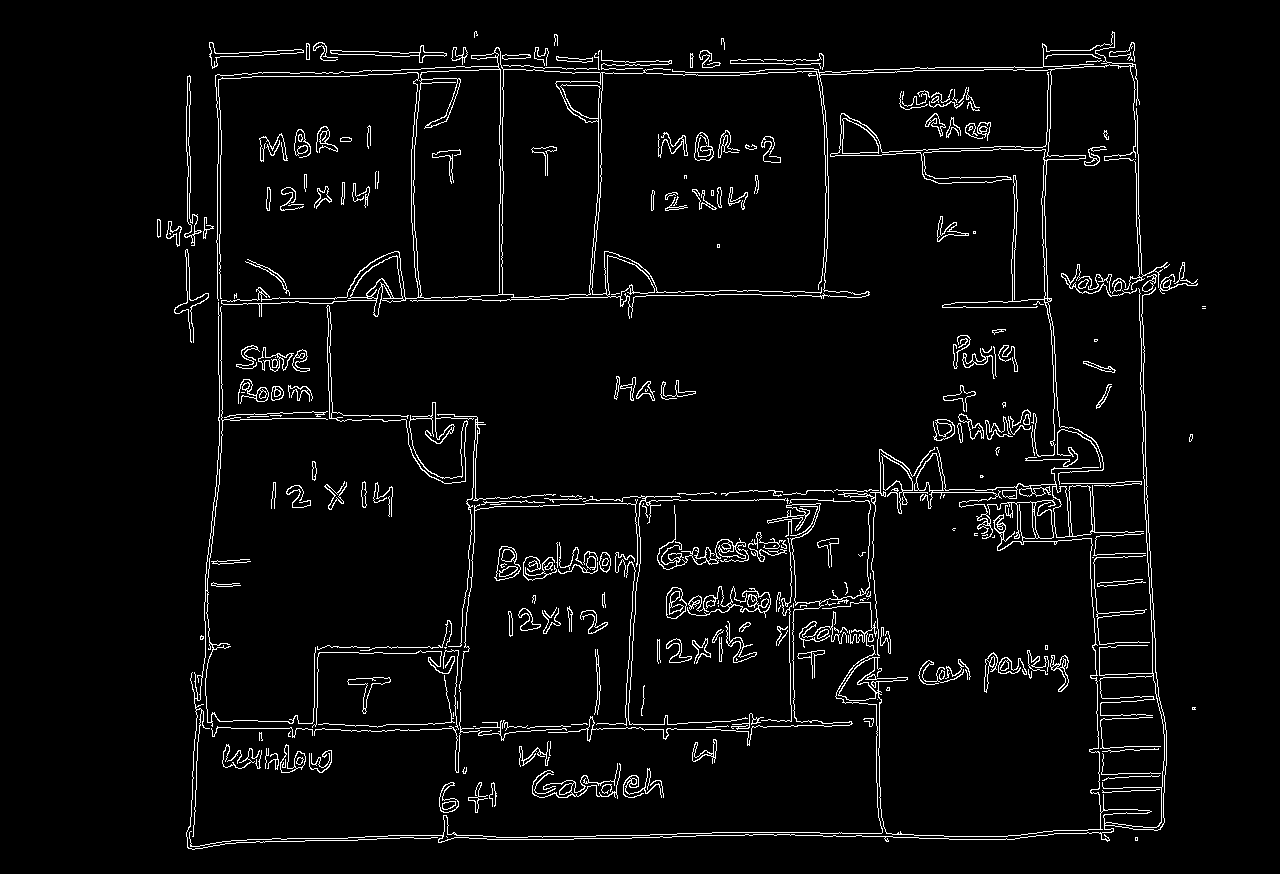 12
4'
4'
12'
MBR-1
12'x14'
T
T
MBR-2
12'x14'
Wash
Area
5'
14ft
K.
Varandah
Store
Room
HALL
Puja
+
Dinning
12'x14
36"
Bedroom
12'x12'
Guest
Bedroom
12x12'
T
Common
T
T
Car parking
Window
W
W
6'ft
Garden